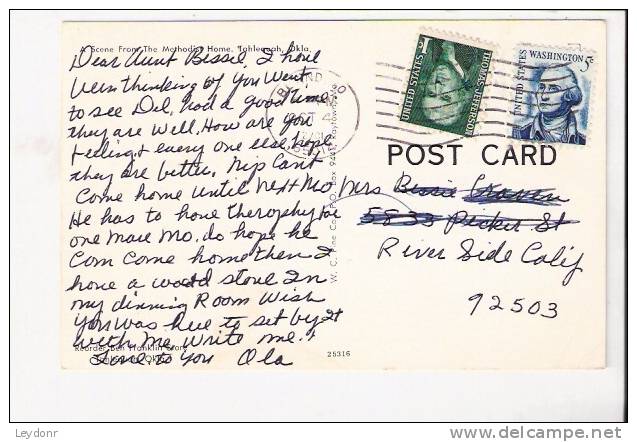 A Scene From The Methodist Home, Tahlequah, Okla.
Dear Aunt Bessie, I have
been thinking of you Went
to see Dil, had a good time
they are Well, How are you
feeling & every one else, hope
they are better, Nip Cant
Come home until next Mo,
He has to have therophy for
one more Mo. do hope he
Com Come home then I
have a wood stove In
my dinning Room Wish
you was here to set by It
with me. Write me.
Love to you Ola
Reorder Ben Franklin Store
Tahlequah, Okla.
W. C. Pine Co., P.O. Box 9445
25316
UNITED STATES
1¢
THOMAS JEFFERSON
UNITED STATES
WASHINGTON 5¢
POST CARD
Mrs Bessie Craven
5833 Picker St
River Side Calif
92503
Leydonr
delcampe.net